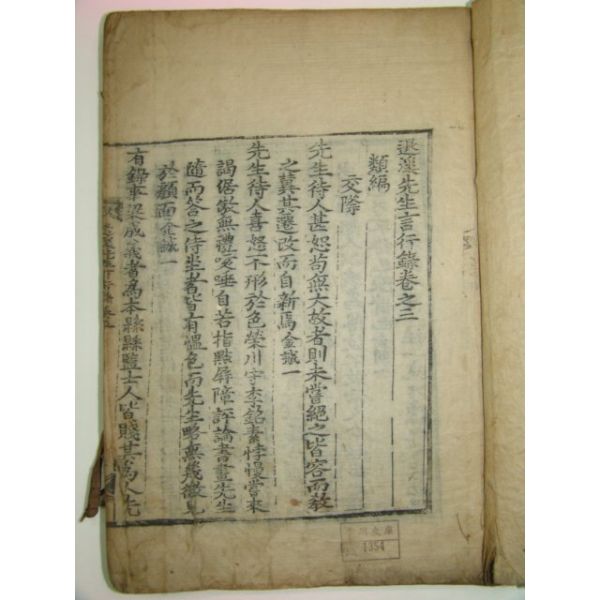 退溪先生言行錄卷之三
類編
交際
先生待人甚恕苟無大故者則未嘗絕之皆容而敎
之冀其遷改而自新焉金誠一
先生待人喜怒不形於色榮川守李銘素悖慢嘗來
謁倨傲無禮唾自若指點屛障評論書畫先生
隨而答之侍坐者皆有慍色而先生略無幾微見
於顏面金誠一
有錄事梁成義者爲本縣縣監士人皆賤其爲人先
1354